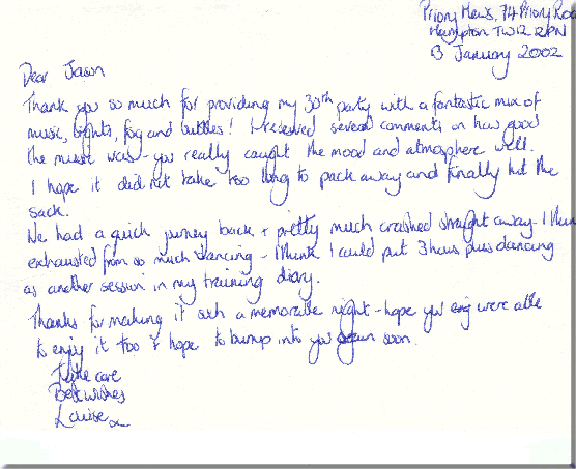 Priory Mews, 74 Priory Road
Hampton TW12 2PN
13 January 2002
Dear Jason
Thank you so much for providing my 30th party with a fantastic mix of
music, lights, fog and bubbles! I received several comments on how good
the music was - you really caught the mood and atmosphere well.
I hope it did not take too long to pack away and finally hit the
sack.
We had a quick journey back & pretty much crashed straight away - I think
exhausted from so much dancing - I think I could put 3 hours plus dancing
as another session in my training diary.
Thanks for making it such a memorable night - hope you were able
to enjoy it too & hope to bump into you again soon.
Take care
Best wishes
Louise